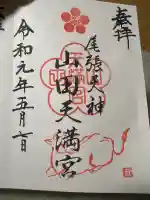 奉拝
尾張天神
山田天満宮
令和元年五月七日